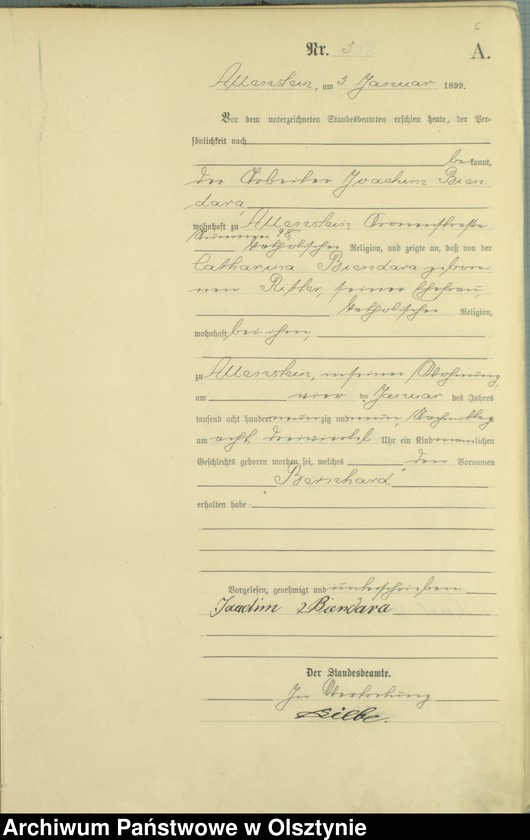 6
Nr. 5
A.
Allenstein, am 5 Januar 1899.
Vor dem unterzeichneten Standesbeamten erschien heute, der Per-
sönlichkeit nach
bekannt,
der Arbeiter Joachim Bien
dara,
wohnhaft zu Allenstein Kronenstraße
Nummer 28,
katholischer Religion, und zeigte an, daß von der
Catharina Biendara gebore
nen Ritter, seiner Ehefrau,
katholischer Religion,
wohnhaft bei ihm,
zu Allenstein, in seiner Wohnung
am vier ten Januar des Jahres
tausend acht hundert neunzig und neun, Nachmittag
um acht dreiviertel Uhr ein Kind männlichen
Geschlechts geboren worden sei, welches den Vornamen
"Bernhard"
erhalten habe.
Vorgelesen, genehmigt und unterschrieben
Joachim Biendara
Der Standesbeamte.
In Vertretung
Archiwum Państwowe w Olsztynie